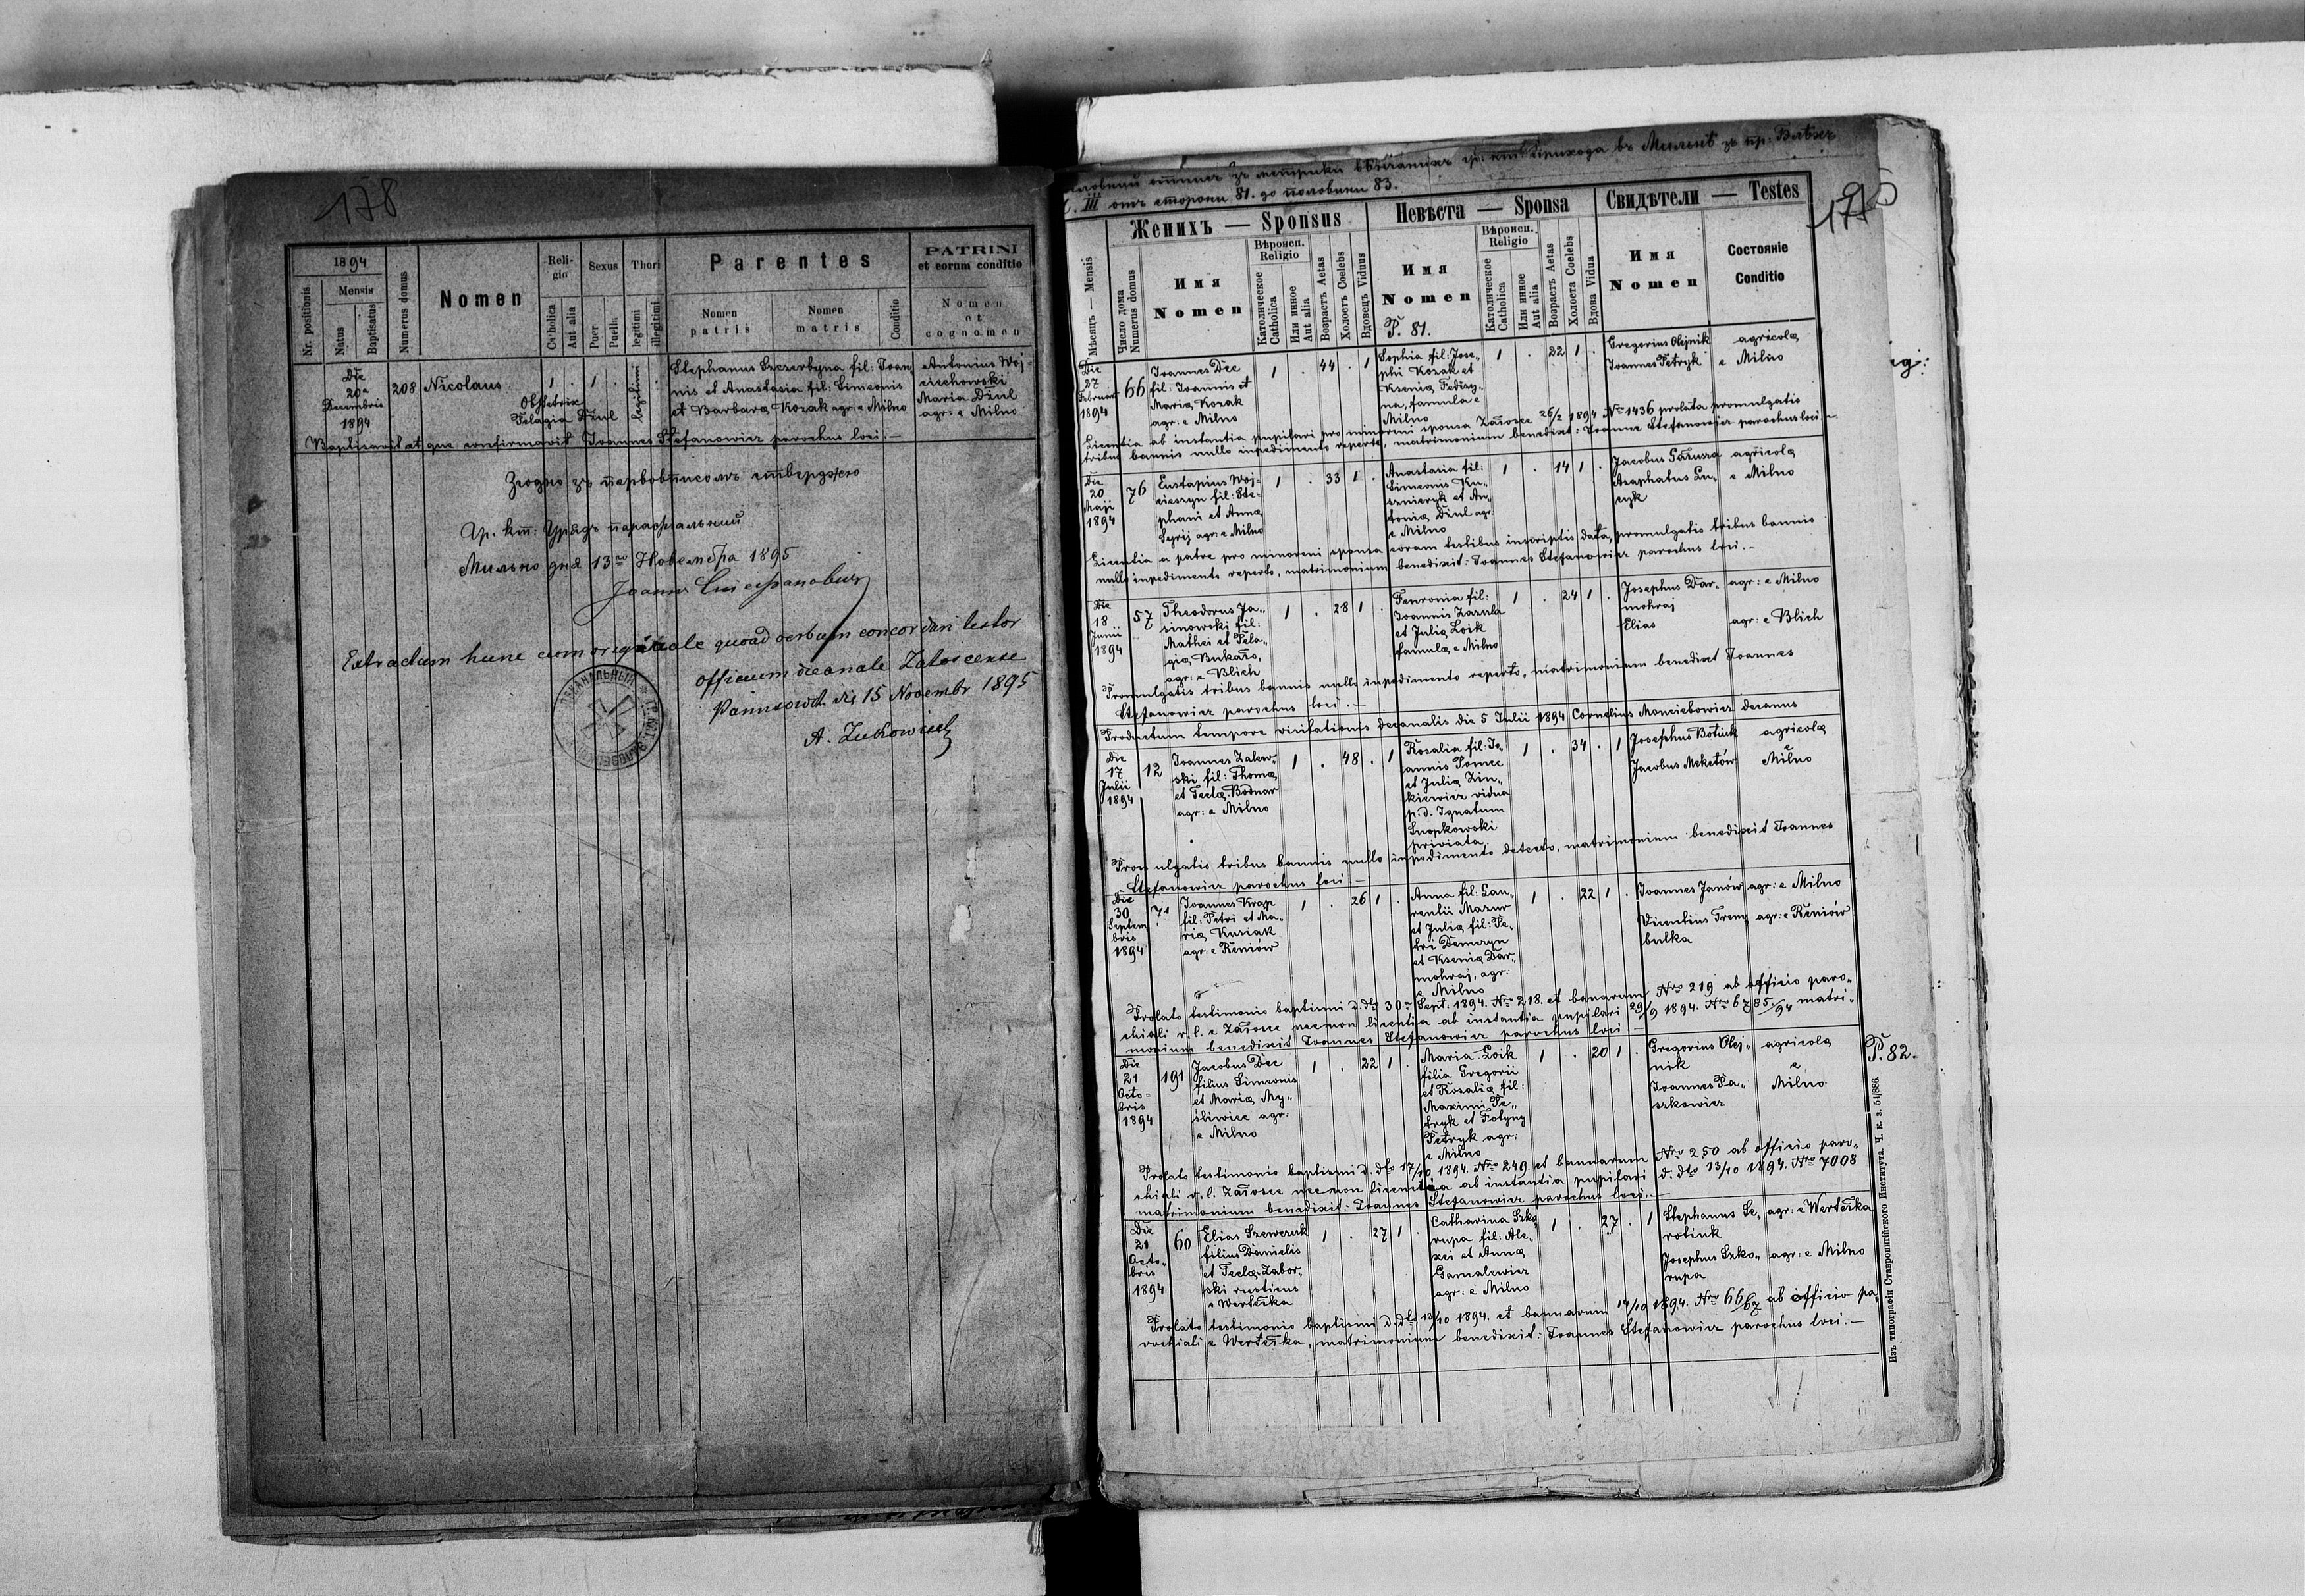 178
1894
Nr. positionis
Mensis
Natus
Baptisatus
Numerus domus
Nomen
Religio
Catholica
Aut alia
Sexus
Puer
Puella
Thori
legitimi
illegitimi
Parentes
Nomen patris
Nomen matris
Conditio
PATRINI
et eorum conditio
Nomen
et
cognomen
Die
20a
Decembris
1894
208
Nicolaus
1 . 1 .
legitimi
Obstetrix
Pelagia Dziul
Stephanus Szczerbyna fil: Joan„
nis et Anastasia fil: Simeonis
et Barbara Kozak agr: e Milno
Antonius Woj„
ciechowski
Maria Dziul
agr: e Milno
Baptisavit atque confirmavit Joannes Stefanowicz parochus loci.—
Згодно зъ первовписомъ стверджую
Гр. кт: Урядъ парохіальный
Мильно дня 13го Новембра 1895
Extractum hunc cum originale quoad verbum concordari testor
officium decanale Załoscense
die 15 Novembr 1895
A. Zukowicz
III отъ стороны 81. до половины 83.
179
Женихъ — Sponsus
Невѣста — Sponsa
Свидѣтели — Testes
Мѣсяцъ — Mensis
Число дома
Numerus domus
Имя
Nomen
Вѣроисп.
Religio
Католическое
Catholica
Или инное
Aut alia
Возрастъ Aetas
Холостъ Coelebs
Вдовецъ Viduus
Имя
Nomen
P. 81.
Вѣроисп.
Religio
Католическое
Catholica
Или инное
Aut alia
Возрастъ Aetas
Холоста Coelebs
Вдова Vidua
Имя
Nomen
Состояніе
Conditio
Die
27
Februar
1894
66
Joannes Dec
fil: Joannis et
Maria Kozak
agr: e Milno
1 . 44 . 1
Sophia fil: Jose„
phi Kozak et
Ksenia Fedizy„
na, famula e
Milno
1 . 22 1 .
Gregorius Olejnik
Joannes Petryk
agricola
e Milno
Licentia ab instantia pupilari pro minoreni sponsa Załosce 26/2 1894 No 1436 prolata promulgatis
tribus bannis nullo inpedimento reperto, matrimonium benedixit: Joannes Stefanowicz parochus loci.—
Die
20
Maji
1894
76
Eustapius Woj„
cieszyn fil: Ste„
phani et Anna
Seyrij agr: e Milno
1 . 33 1 .
Anastasia fil:
Simeonis Ku„
sznieryk et An„
tonia Dziul agr.
e Milno
1 . 14 1 .
Jacobus Parussa
Asaphatus Lu„
cyk
agricola
e Milno
Licentia a patre pro minoreni sponsa coram testibus inscriptis data, promulgatis tribus bannis
nullo inpedimento reperto, matrimonium benedixit: Joannes Stefanowicz parochus loci.—
Die
18
Junii
1894
57
Theodorus Ja„
sinowski fil:
Mathei et Pela„
gia Bukało,
agr: e Blich
1 . 28 1 .
Fenronia fil:
Joannis Zazula
et Julia Łoik
famula e Milno
1 . 24 1 .
Josephus Dar„
mohraj
Elias
agr: e Milno
agr: e Blich
Promulgatis tribus bannis nullo inpedimento reperto, matrimonium benedixit Joannes
Stefanowicz parochus loci.—
Productum tempore visitationis decanalis die 5 Julii 1894 Cornelius Monciebowicz decanus
Die
17
Julii
1894
12
Joannes Zalew„
ski fil: Thoma
et Tecla Bodnar
agr: e Milno
1 . 48 . 1
Rosalia fil: Jo„
annis Pomee
et Julia Zin„
kiewicz vidua
p. d. Ignatum
Snopkowski
priviata
1 . 34 . 1
Josephus Botiuk
Jacobus Meketów
agricola
e
Milno
Promulgatis tribus bannis nullo inpedimento detecto, matrimonium benedixit Joannes
Stefanowicz parochus loci.—
Die
30
Septem
bris
1894
71
Joannes Krąp
fil: Petri et Ma„
ria Kusiak
agr: e Reniów
1 . 26 1 .
Anna fil: Lau„
rentii Mazur
et Julia fil: Pe„
tri Demczyn
et Ksenia Dar„
mohraj, agr:
e Milno
1 . 22 1 .
Joannes Janów
Vicentius Trem„
bulka
agr: e Milno
agr: e Reniów
Prolato testimonio baptismi d. dto 30 Sept: 1894. Nro 218. et banarum Nro 219 ab officio paro„
chiali r. l. e Załosce necnon licentia ab instantia pupilari 29/9 1894. Nro 6785/94 matri„
monium benedixit Joannes Stefanowicz parochus loci.—
P. 82.
Die
21
Octo=
bris
1894
191
Jacobus Dec
filius Simeonis
et Maria My„
śliwiec agr:
e Milno
1 . 22 1 .
Maria Łoik
filia Gregorii
et Rosalia fil:
Maximi Pe„
tryk et Fotyny
Petryk agr:
e Milno
1 . 20 1 .
Gregorius Olej„
nik
Joannes Pa„
szkowicz
agricola
e
Milno
Prolato testimonio baptismi d. dto 17/10 1894. Nro 249. et bannarum Nro 250 ab officio paro„
chiali r. l. Załosce necnon licentia ab instantia pupilari d. dto 13/10 1894. Nro 7008
matrimonium benedixit: Joannes Stefanowicz parochus loci.—
Die
21
Octo„
bris
1894
60
Elias Szewczuk
filius Danielis
et Tecla Zabor„
ski rusticus
e Wertełka
1 . 27 1 .
Catharina Szko„
rupa fil: Ale„
xei et Anna
Gamalewicz
agr: e Milno
1 . 27 . 1
Stephanus Se„
rotiuk
Josephus Szko„
rupa
agr: e Wertełka
agr: e Milno
Prolato testimonio baptismi d. dto 13/10 1894. et bannarum 14/10 1894. Nro 66/67 ab officio pa„
rochiali e Wertełka, matrimonium benedixit: Joannes Stefanowicz parochus loci.—
Изъ типографіи Ставропигійского Института. Ч. к. з. 51/886.